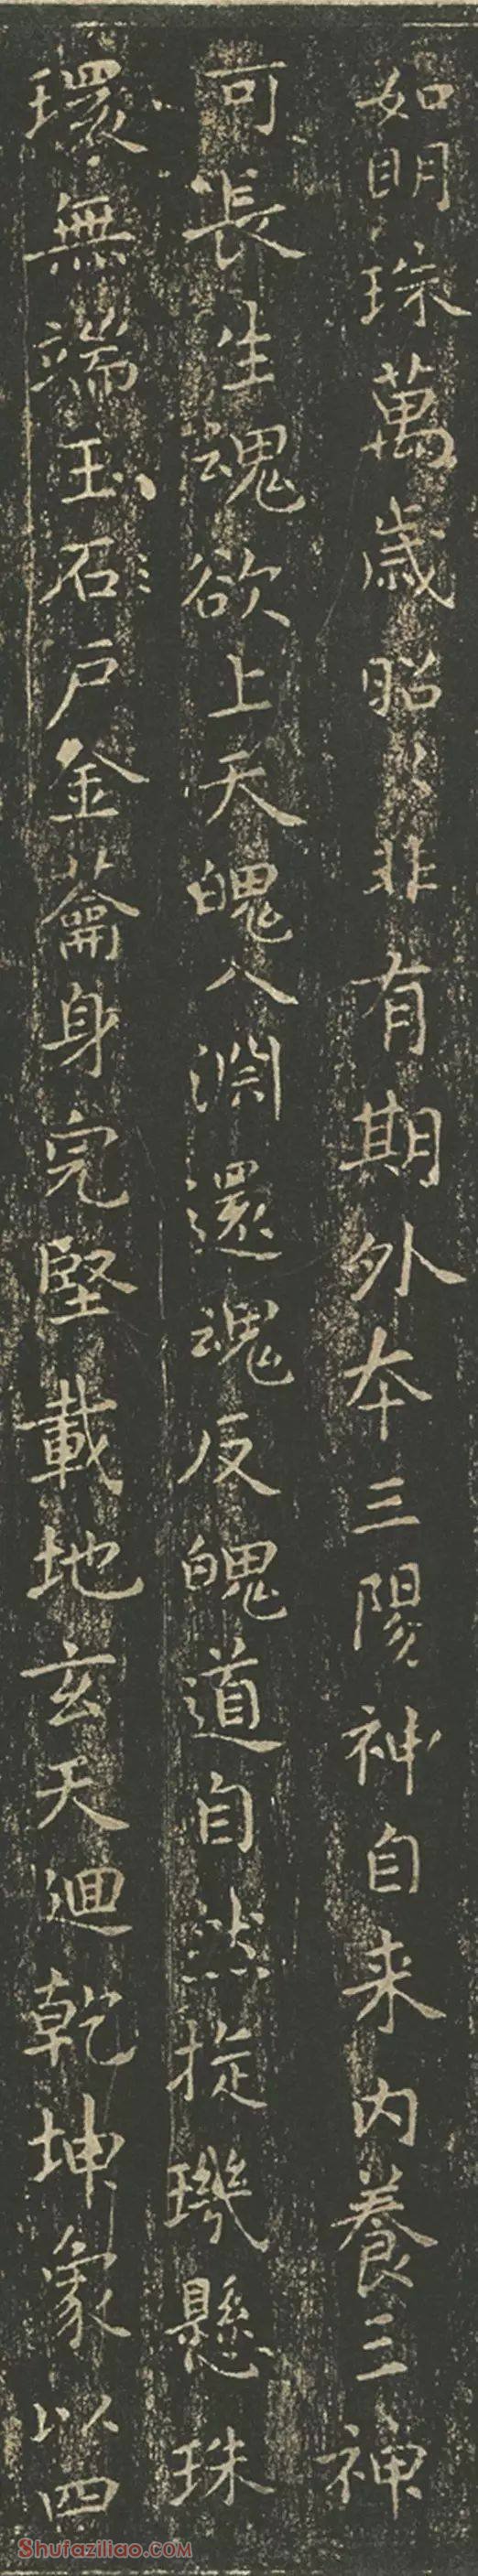 如明珠萬歲昭〻非有期外本三陽神自来内養三神
可長生魂欲上天魄入淵還魂反魄道自然㨁璣懸珠
環無端玉石戶金籥身完堅載地玄天迴乾坤象以四
Shufaziliao.COM